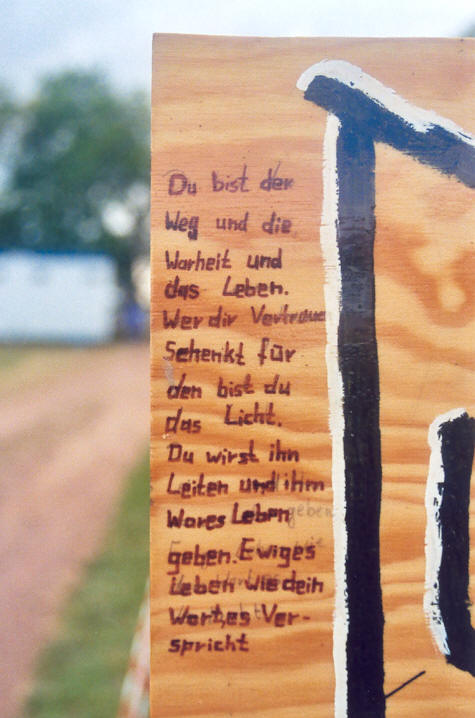 Du bist der
Weg und die
Warheit und
das Leben.
Wer dir Vertrauen
Schenkt für
den bist du
das Licht.
Du wirst ihn
Leiten und ihm
Wares Leben
geben. Ewiges
Leben wie dein
Wort es Ver-
spricht